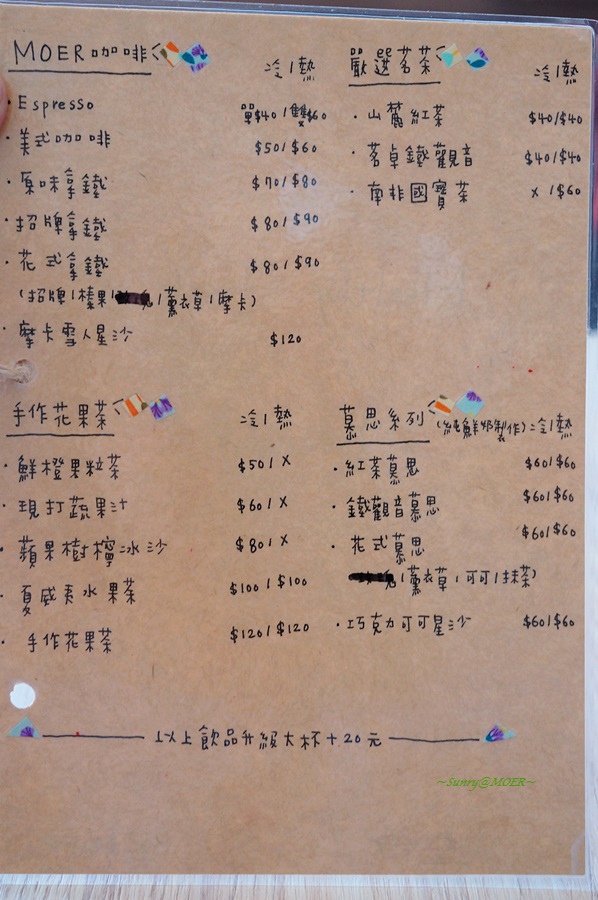 MOER咖啡 冷/熱
· Espresso 單$40/雙$60
· 美式咖啡 $50/$60
· 原味拿鐵 $70/$80
· 招牌拿鐵 $80/$90
· 花式拿鐵 $80/$90
(招牌/榛果/薰衣草/摩卡)
· 摩卡雪人星沙 $120
嚴選茗茶 冷/熱
· 山麓紅茶 $40/$40
· 茗卓鐵觀音 $40/$40
· 南非國寶茶 x/$60
手作花果茶 冷/熱
· 鮮橙果粒茶 $50/x
· 現打蔬果汁 $60/x
· 蘋果樹檸冰沙 $80/x
· 夏威夷水果茶 $100/$100
· 手作花果茶 $120/$120
慕思系列 (純鮮奶製作)=冷/熱
· 紅茶慕思 $60/$60
· 鐵觀音慕思 $60/$60
· 花式慕思 $60/$60
/薰衣草/可可/抹茶)
· 巧克力可可星沙 $60/$60
以上飲品升級大杯+20元
~Sunry@MOER~